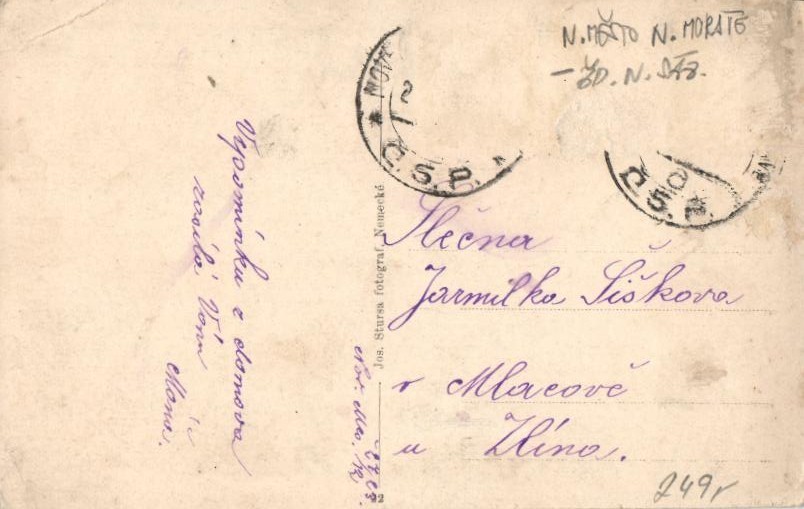 N. MĚSTO N. MORAVĚ
- ŽD. N. SÁZ.
* NOV
2
Č.S.P. *
Č.S.P.
Vzpomínku z domova
zasílá Vám
Máňa.
Jos. Stursa fotograf, Nemecké
22
Slečna
Jarmilka Šiškova
v Mlacově
u Zlína.
249r